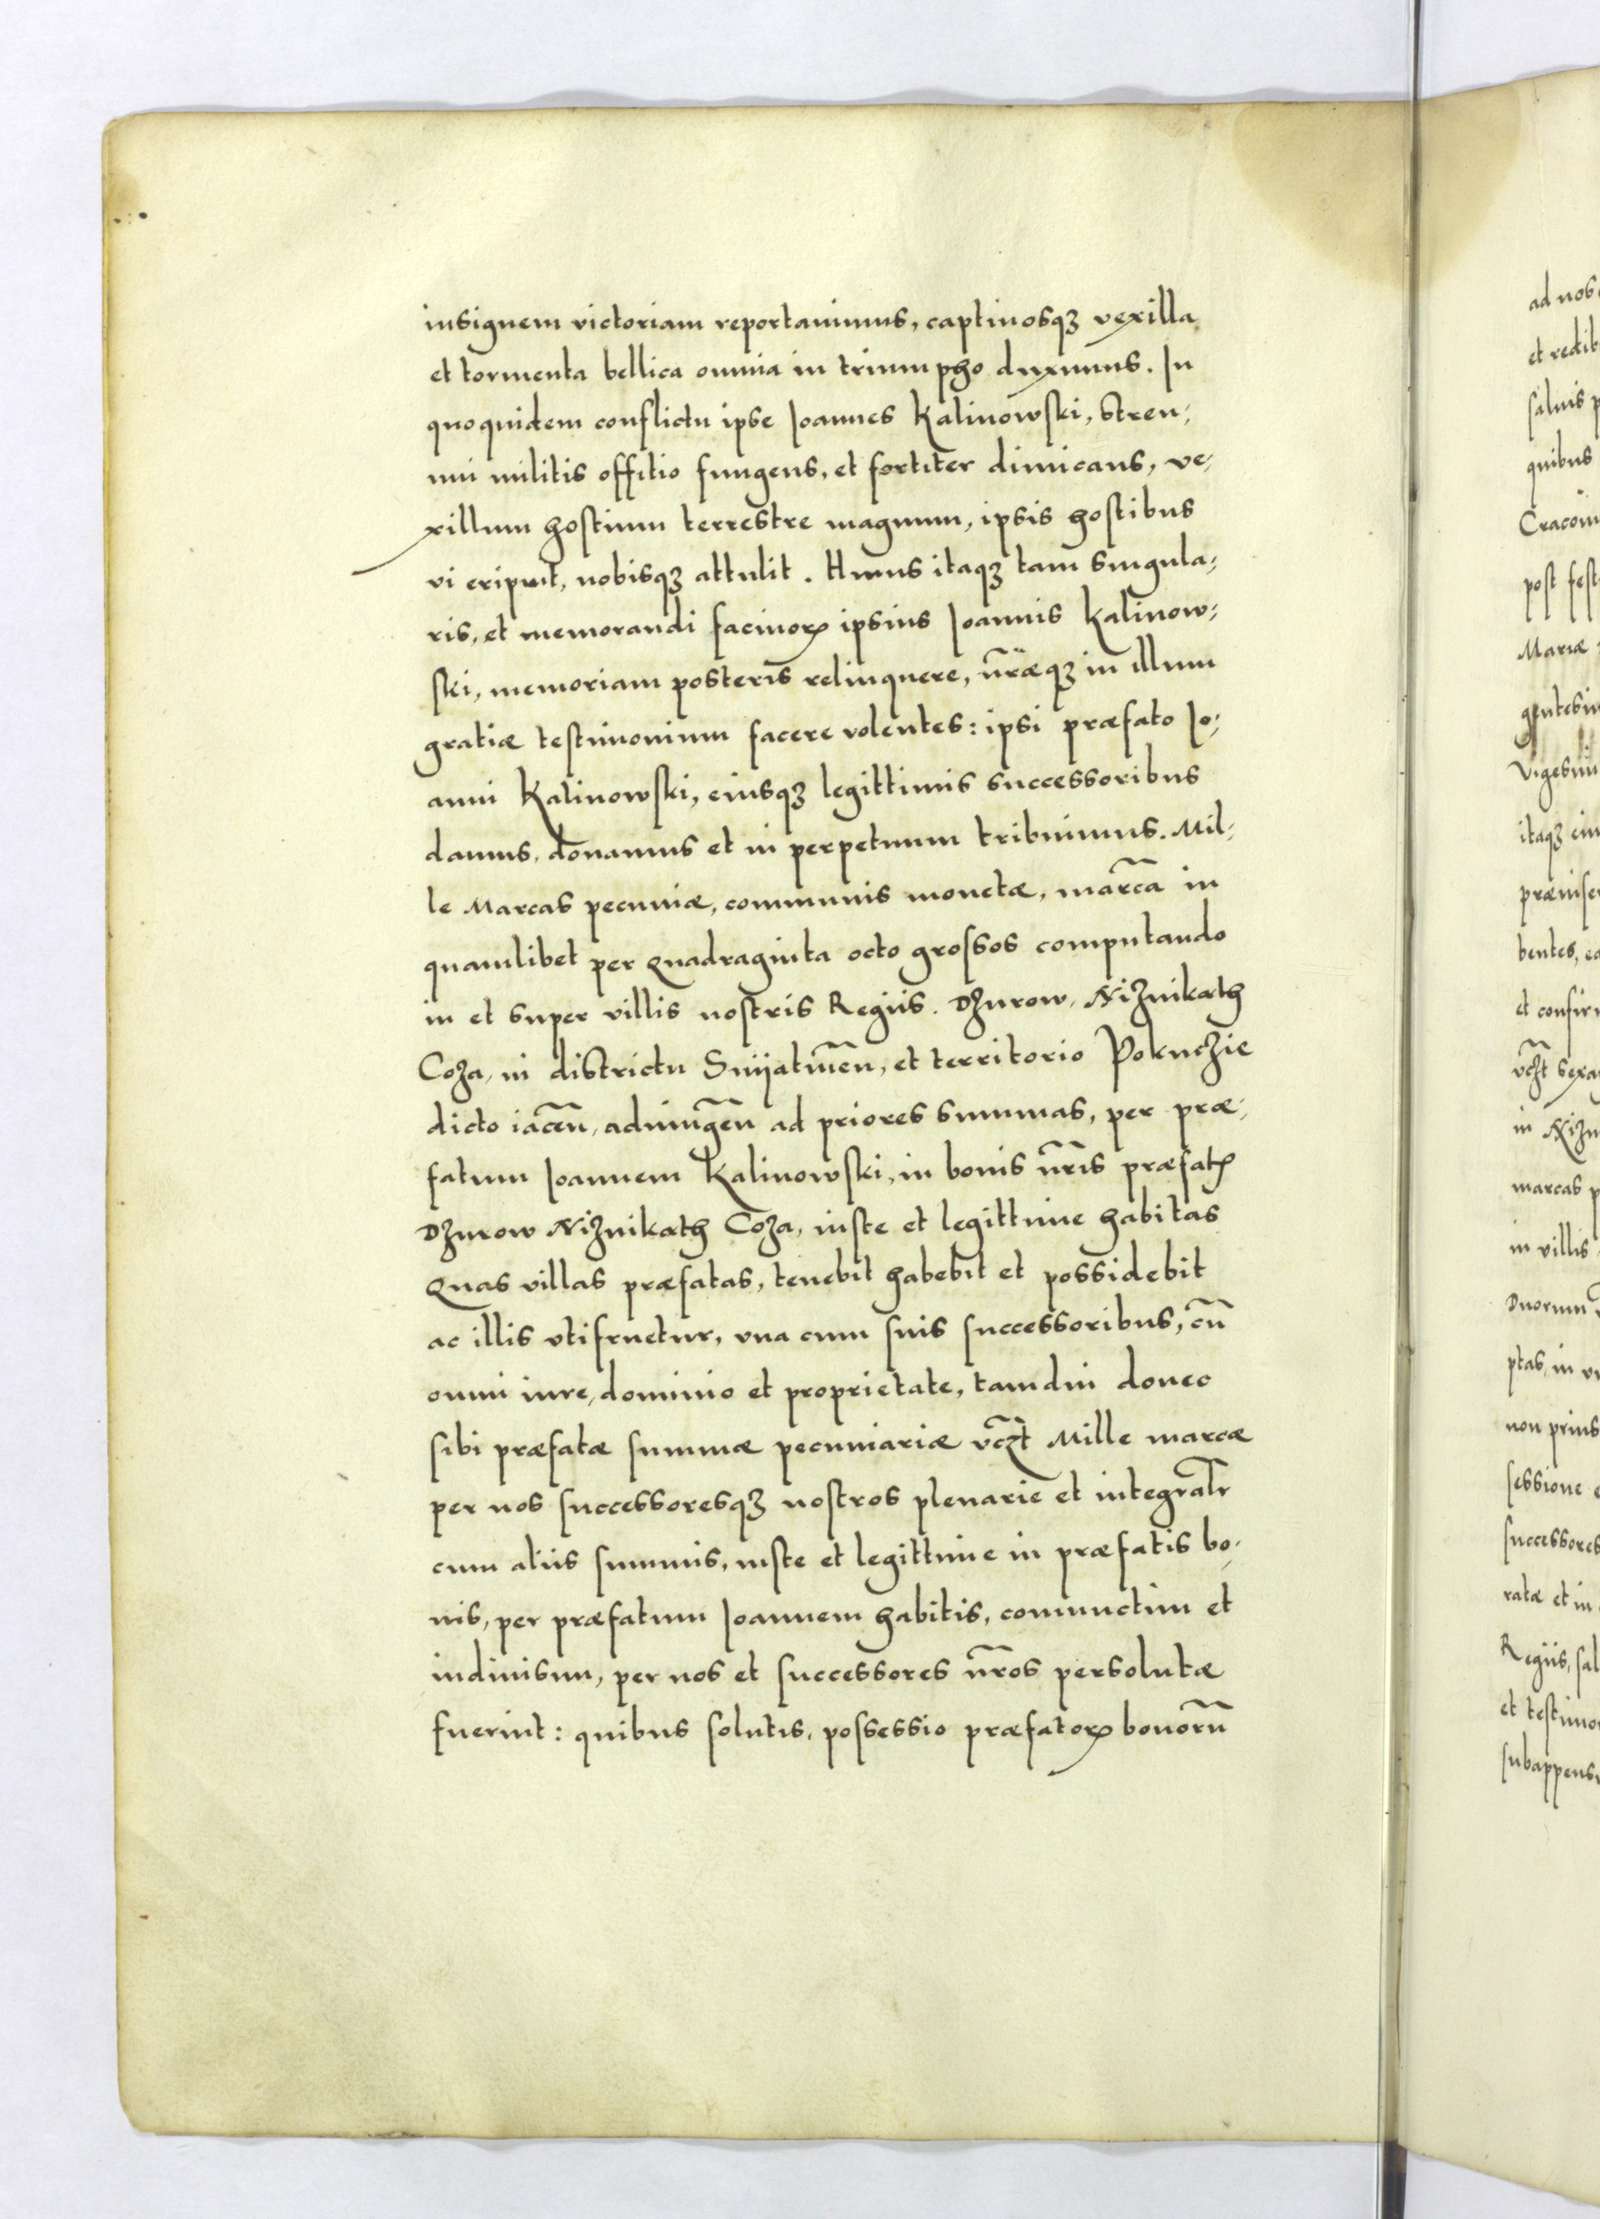 insignem victoriam reportauimus, captiuosqȝ vexilla
et tormenta bellica omnia in triumpho duximus. In
quoquidem conflictu ipse Joannes Kalinowski, stren-
nui militis offitio fungens, et fortiter dimicans, ve-
xillum hostium terrestre magnum, ipsis hostibus
vi eripuit, nobisqȝ attulit. Huius itaqȝ tam singula-
ris, et memorandi facinorꝝ ipsius Joannis Kalinow-
ski, memoriam posteris relinquere, nr̃æqȝ in illum
gratiæ testimonium facere volentes: ipsi præfato Jo-
anni Kalinowski, eiusqȝ legittimis successoribus
damus, donamus et in perpetuum tribuimus. Mil-
le Marcas pecuniæ, communis monetæ, marc̃a in
quamlibet per quadraginta octo grossos computando
in et super villis nostris Regiis. Dzurow, Niznikath
Coza, in districtu Snijatineñ, et territorio Pokuczie
dicto iaceñ, adiungeñ ad priores summas, per præ-
fatum Joannem Kalinowski, in bonis nr̃is præfatꝝ
Dzurow Niznikath Coza, iuste et legittime habitas
Quas villas præfatas, tenebit habebit et possidebit
ac illis vtifruetur, vna cum suis successoribus, cũ
omni iure, dominio et proprietate, tamdiu donec
sibi præfatæ summæ pecuniariæ vcz̃t Mille marcæ
per nos successoresqȝ nostros plenarie et integralr̃
cum aliis summis, iuste et legittime in præfatis bo-
nis, per præfatum Joannem habitis, coniunctim et
indiuisim, per nos et successores nr̃os persolutæ
fuerint: quibus solutis, possessio præfatorꝝ bonorũ
ad nos
et redib
saluis p
quibus
Cracouiæ
post fest
Mariæ
gentesim
Vigesim
itaqȝ
præinser
bentes, ea
et confir
vcz̃t sexa
in Nizn
marcas p
in villis
Duorum
ptas, in
non prius
sessione
successores
ratæ et in
Regiis, sal
et testimo
subappens